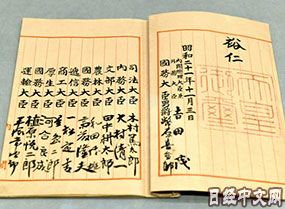 裕仁
昭和二十一年十一月三日
内閣總理大臣兼
外務大臣 吉田茂
國務大臣 男爵 幣原喜重郎
司法大臣 木村篤太郎
内務大臣 大村清一
文部大臣 田中耕太郎
農林大臣 和田博雄
國務大臣 斎藤隆夫
遞信大臣 一松定吉
商工大臣 星島二郎
厚生大臣 河合良成
國務大臣 植原悦二郎
運輸大臣 平塚常次郎
日经中文网